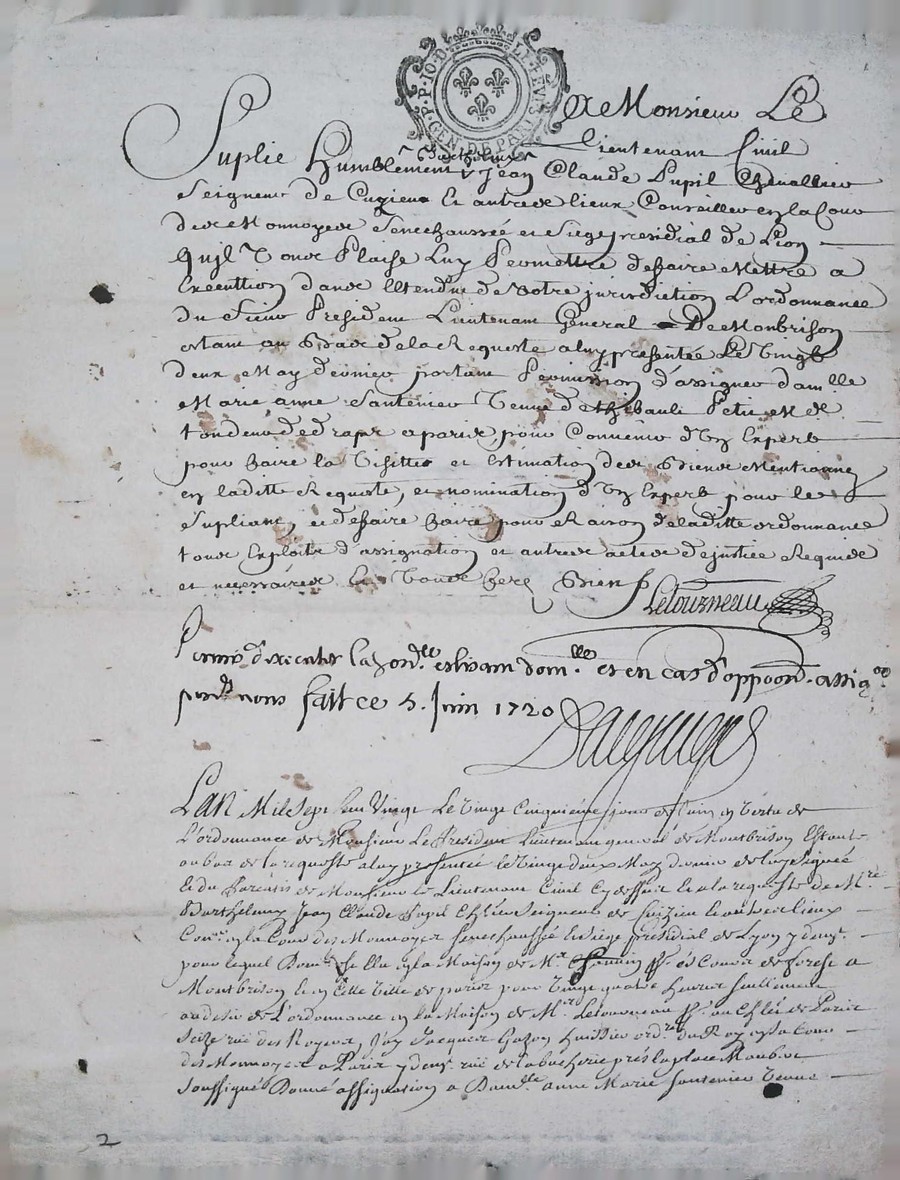 GEN. DE PARIS
A Monsieur Le
Lieutenant Civil
Suplie Humblement Barthelemy Jean Claude Pupil Chevallier
Seigneur de Cuzieu Et autres lieux Conseiller en la Cour
des Monnoyes Senechaussée et Siege presidial de Lion
Quil Vous Plaise Luy Permettre de faire Mettre a
Execution dans l'Etendue de votre jurisdiction L'ordonnance
du Sieur President Lieutenant General De Monbrison
estant au Bas de la Requeste a luy presentée Le Vingt
deux May dernier portant Permission d'assigner dam.lle
Marie anne Santerier Veuve de Thibault Petit M. de
tondeur de draps a paris pour Convenir d'Un Expert
pour faire la Visitte et Estimation des Biens Mentionnez
en laditte Requeste, et nomination d'Un Expert pour le
Supliant, et de faire faire pour Raison de laditte ordonnance
tous Exploits d'assignation et autres actes de justice Requis
et necessaires Et Vous ferez Bien
Letourneau
Permis d'executer la d. ord.ce estant dom.lle et en cas d'oppoon. assig.on
pard. nous fait ce 5. Juin 1720
L'an Mil Sept Cent Vingt Le Vingt Cinquieme jour de Juin en Vertu de
L'ordonnance de Monsieur Le President Lieutenant general de Montbrison Estant
au bas de la requeste a luy presentée le Vingt deux May dernier de luy Signée
Et du Pareatis de Monsieur le Lieutenant Civil Cy dessus Et a la requeste de M.re
Barthelemy Jean Claude Pupil Ch.lier Seigneur de Cuizieu Et autres lieux
Con.er en la Cour des Monnoyes Senechaussée et Siege presidial de Lyon y dem.t
pour lequel Domicile Est Elu en la Maison de M.e pr. es Cours de forest a
Montbrison Et en Cette Ville de paris pour Vingt quatre heures Seullement
au desir de L'ordonnance en la Maison de M.e Letourneau pr. au Ch.let de Paris
Seize rue des Noyers, J'ay Jacques Gazon huissier ord.re du Roy en Sa Cour
des Monnoyes a Paris y dem.t rue de la bucherie prés la place Maubert
Soussigné Donné assignation a Dam.lle anne Marie Santerier Veuve
2